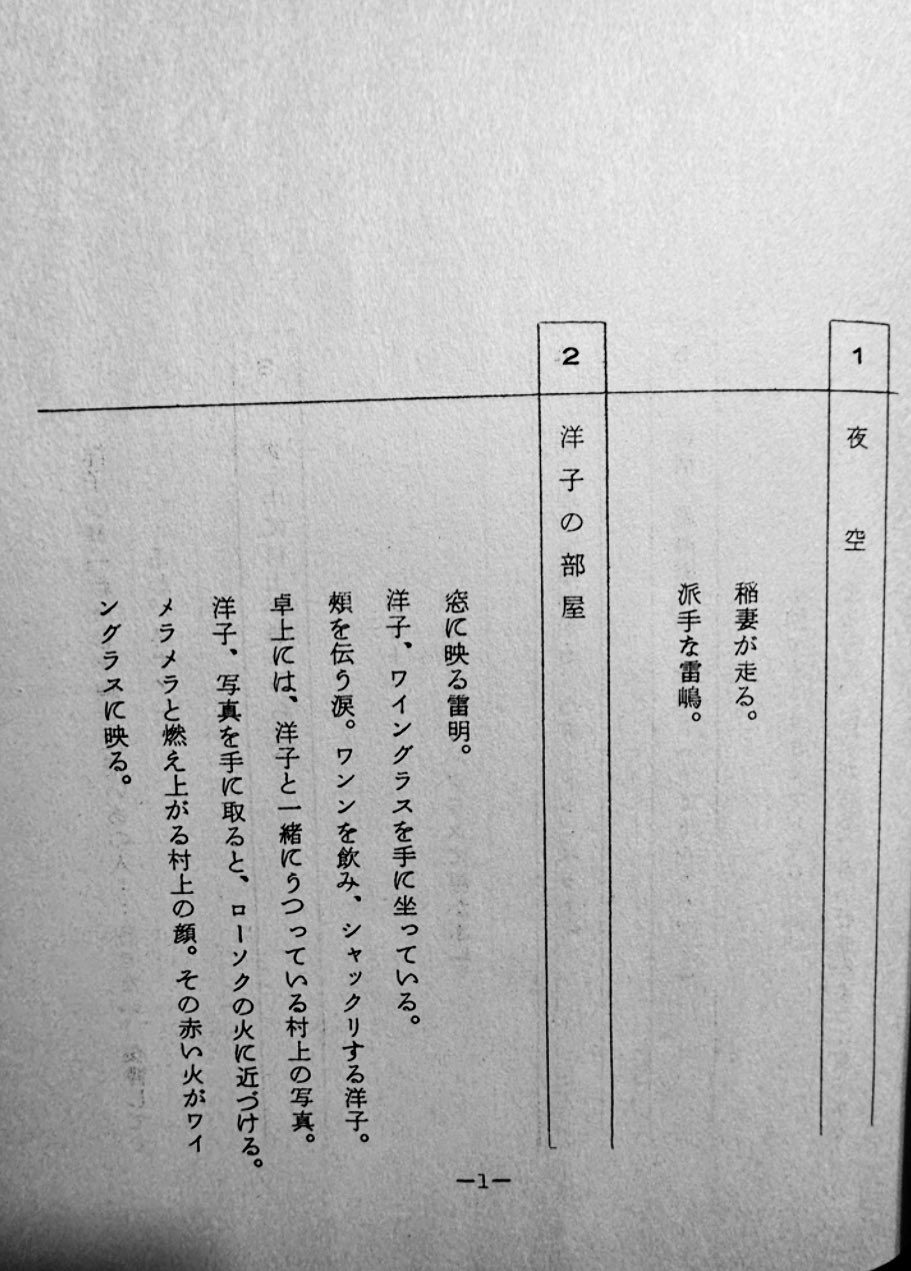 1
夜空
稲妻が走る。
派手な雷嶋。
2
洋子の部屋
窓に映る雷明。
洋子、ワイングラスを手に坐っている。
頬を伝う涙。ワンンを飲み、シャックリする洋子。
卓上には、洋子と一緒にうつっている村上の写真。
洋子、写真を手に取ると、ローソクの火に近づける。
メラメラと燃え上がる村上の顔。その赤い火がワイ
ングラスに映る。
—1—